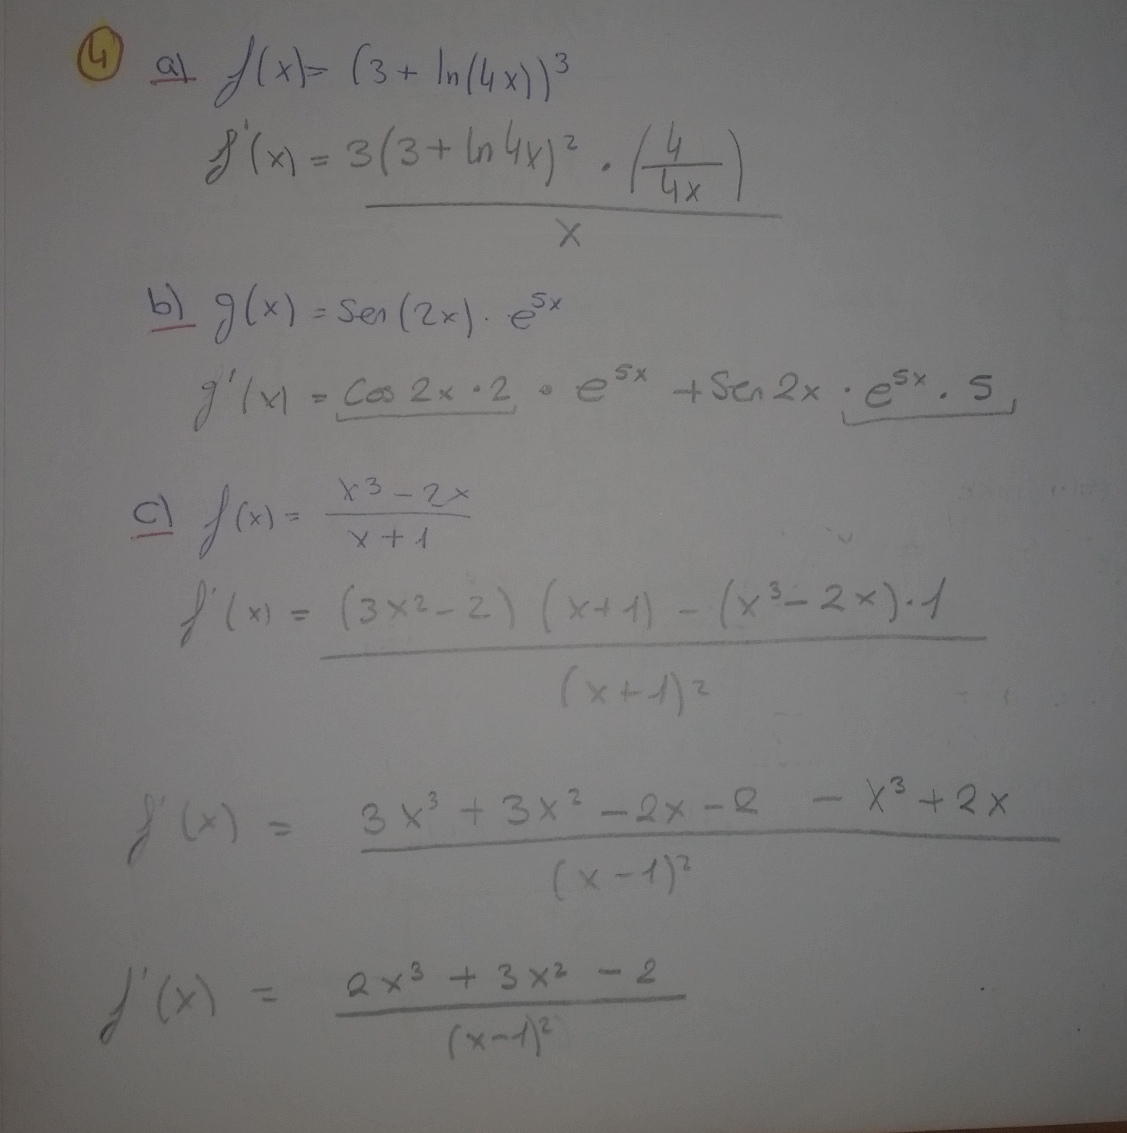 4 a) f(x) = (3 + ln(4x))³
f'(x) = 3(3 + ln 4x)² · (4/4x)
x
b) g(x) = Sen(2x) · e⁵ˣ
g'(x) = Cos 2x · 2 · e⁵ˣ + Sen 2x · e⁵ˣ · 5
c) f(x) = x³ - 2x
x + 1
f'(x) = (3x² - 2) (x + 1) - (x³ - 2x) · 1
(x + 1)²
f'(x) = 3x³ + 3x² - 2x - 2 - x³ + 2x
(x - 1)²
f'(x) = 2x³ + 3x² - 2
(x - 1)²